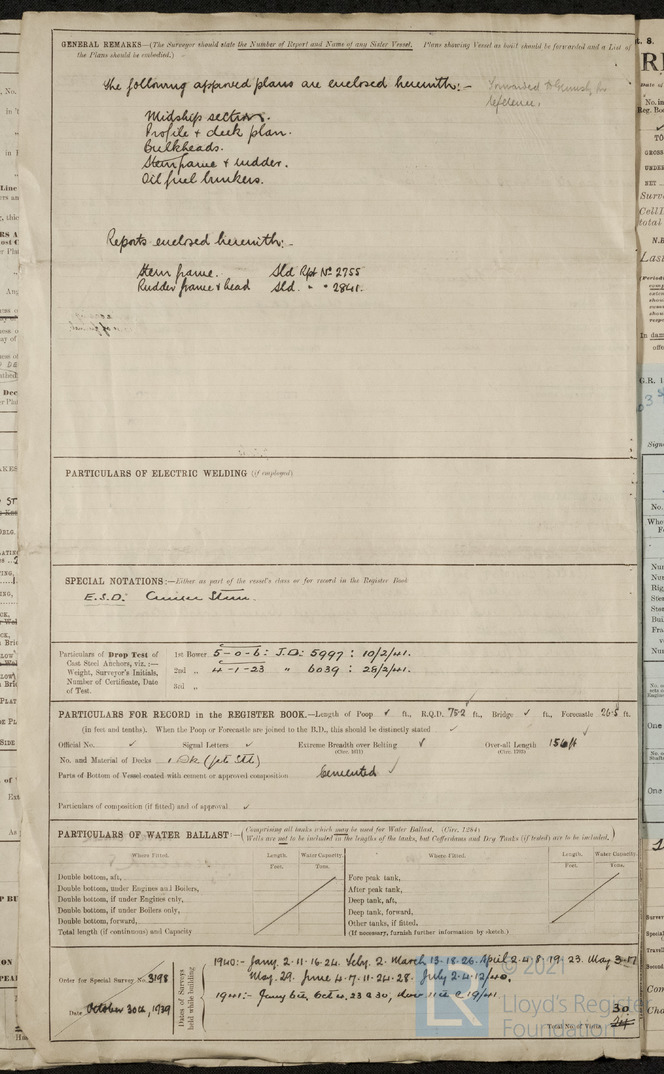 GENERAL REMARKS—(The Surveyor should state the Number of Report and Name of any Sister Vessel. Plans showing Vessel as built should be forwarded and a List of
the Plans should be embodied.)
The following approved plans are enclosed herewith:-
reference.
Midship section.
Profile & deck plan.
Bulkheads.
Sternframe & rudder.
Oil fuel bunkers.
Reports enclosed herewith:-
Stern frame. Sld Rpt No 2755
Rudder frame & head Sld. " " 2841.
PARTICULARS OF ELECTRIC WELDING (if employed)
SPECIAL NOTATIONS:—Either as part of the vessel's class or for record in the Register Book
E.S.D. Cruiser Stern.
Particulars of Drop Test of
Cast Steel Anchors, viz.:—
Weight, Surveyor's Initials,
Number of Certificate, Date
of Test.
1st Bower 5-0-6: J.D: 5997: 10/2/41.
2nd „ 4-1-23 " 6039: 28/2/41.
3rd „
PARTICULARS FOR RECORD in the REGISTER BOOK.—Length of Poop ft., R.Q.D. 75.2 ft., Bridge ft., Forecastle 26.5 ft.
(in feet and tenths). When the Poop or Forecastle are joined to the B.D., this should be distinctly stated
Official No. Signal Letters Extreme Breadth over Belting Over-all Length 156ft
(Circ. 1611) (Circ. 1703)
No. and Material of Decks 1 Dk
Parts of Bottom of Vessel coated with cement or approved composition Cemented
Particulars of composition (if fitted) and of approval
PARTICULARS OF WATER BALLAST:—(Comprising all tanks which may be used for Water Ballast. (Circ. 1284)
Wells are not to be included in the lengths of the tanks, but Cofferdams and Dry Tanks (if tested) are to be included.)
Where Fitted. Length. Water Capacity. Where Fitted. Length. Water Capacity.
Feet. Tons. Feet. Tons.
Double bottom, aft, Fore peak tank,
Double bottom, under Engines and Boilers, After peak tank,
Double bottom, if under Engines only, Deep tank, aft,
Double bottom, if under Boilers only, Deep tank, forward,
Double bottom, forward, Other tanks, if fitted,
Total length (if continuous) and Capacity (If necessary, furnish further information by sketch.)
Order for Special Survey No. 3198
Date October 30th, 1939
Dates of Surveys
held while building
1940:- Jany. 2. 11. 16. 24. Feby. 2. March 13. 18. 26. April 2. 4. 8. 19. 23. May 3. 17
May. 29. June 4. 7. 11. 24. 28. July 2. 4. 12/40.
1941:-
30
Total No. of Visits 24
© 2021
LR
Lloyd's Register
Foundation